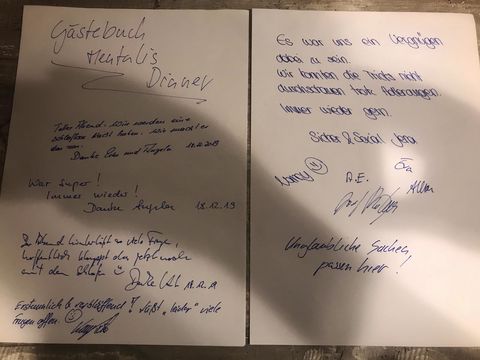 Gästebuch
Mentalis
Dinner
Toller Abend. Wir werden eine
schlaflose Nacht haben. Wie macht er
das nur.
Danke und Angela
War Super!
Immer wieder!
Danke Angelar 18.12.19
Der Abend hinterlässt so viele Fragen,
hoffentlich klappt das jetzt noch
mit dem Schlafen
Danke 18.12.19
Erstaunlich & verblüffend! Läßt "leider" viele
Fragen offen.
Es war uns ein Vergnügen
dabei zu sein.
Wir konnten die Tricks nicht
durchschauen trotz Adleraugen.
Immer wieder gern.
Sicher & Sozial Jena
Nancy R.E. Eva
Allan
Unglaubliche Sachen
passen hier!